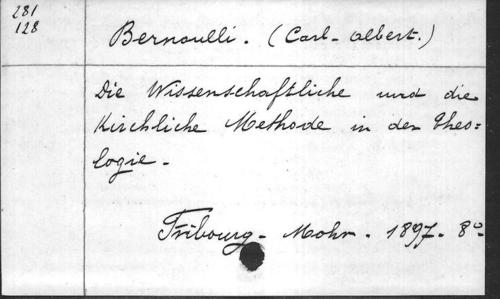 281
128
Bernoulli. (Carl-Albert.)
Die Wissenschaftliche und die
Kirchliche Methode in der Theo=
logie -
Fribourg - Mohr - 1897 - 8º